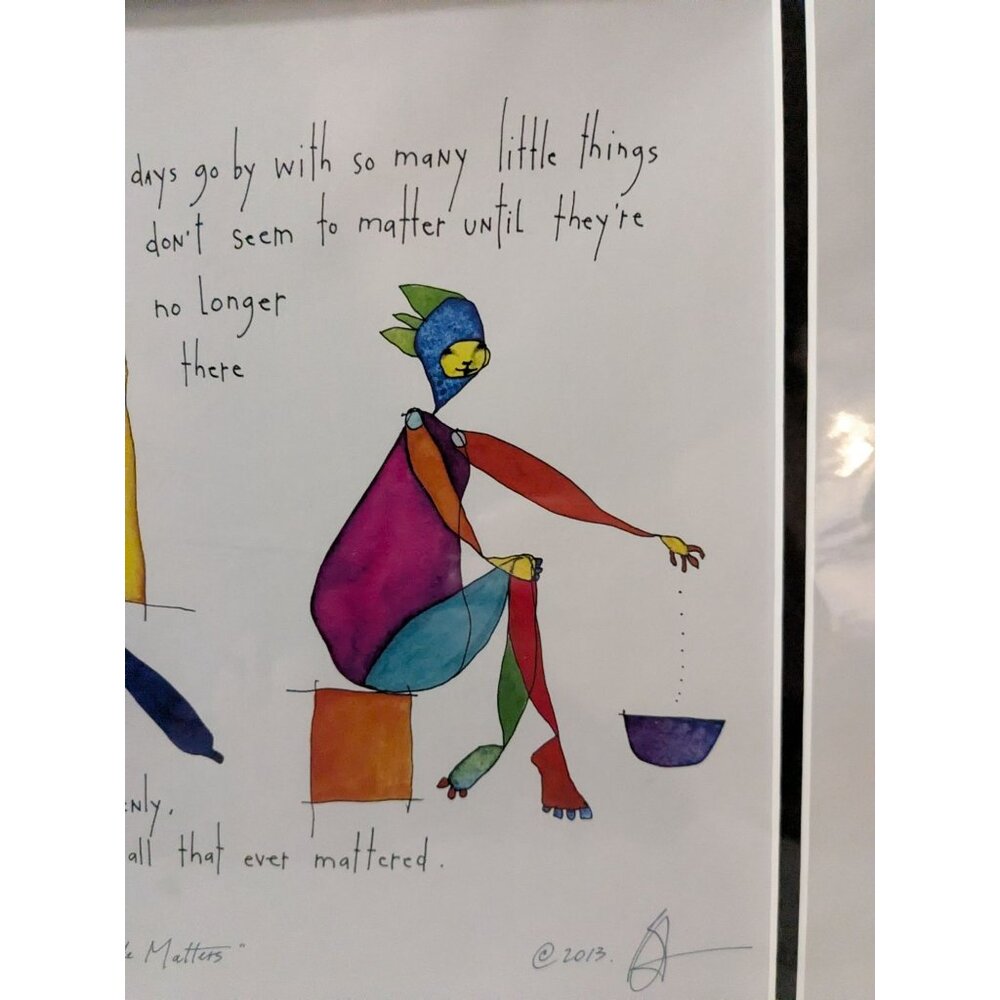 days go by with so many little things
don't seem to matter until they're
no longer
there
enly,
all that ever mattered.
Matters"
© 2013.